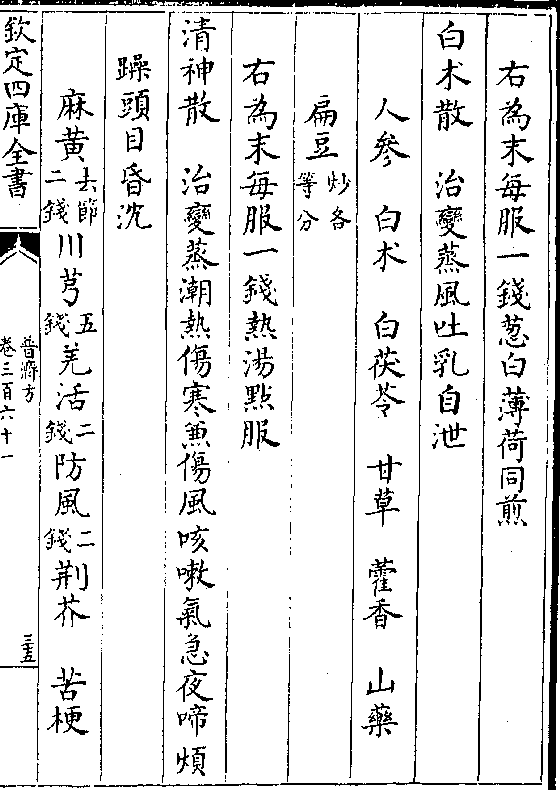 右為末每服一錢葱白薄荷同煎
白术散　治變蒸風吐乳自泄
人參　白术　白茯苓　甘草　藿香　山藥
扁豆炒各等分
右為末每服一錢熱湯點服
清神散　治變蒸潮熱傷寒兼傷風咳嗽氣急夜啼煩
躁頭目昏沈
麻黄去節二錢川芎五錢羌活二錢防風二錢荆芥　苦梗
欽定四庫全書
普濟方
卷三百六十一
三五